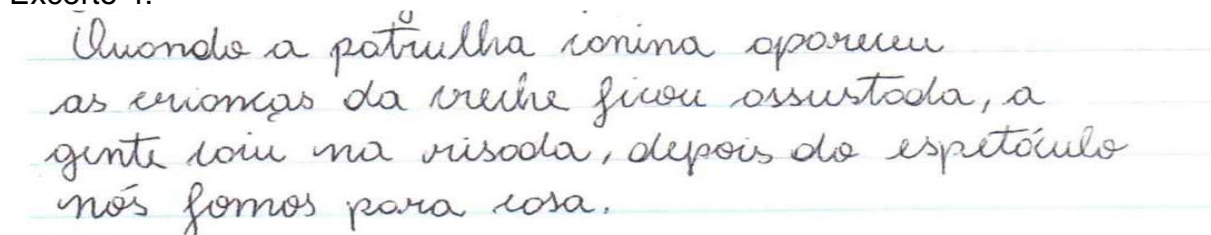 Excerto 4:
Quando a patrulha canina apareceu
as crianças da creche ficou assustada, a
gente caiu na risada, depois do espetáculo
nós fomos para casa.